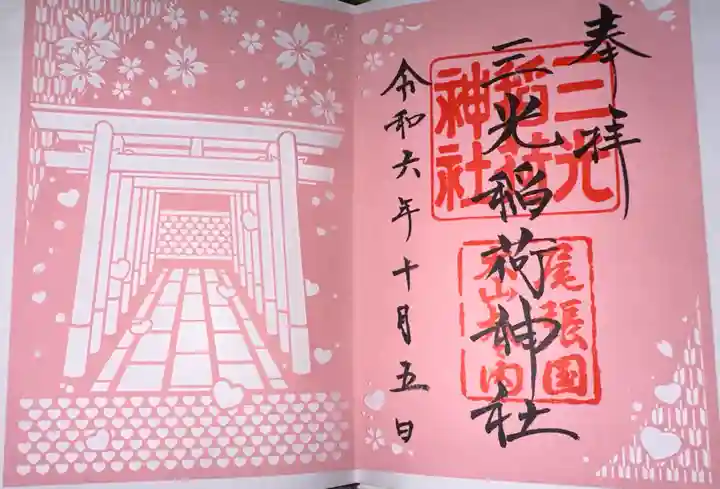 奉拝
三光稲荷神社
三光
稲荷
神社
尾張国
犬山城内
令和六年十月五日